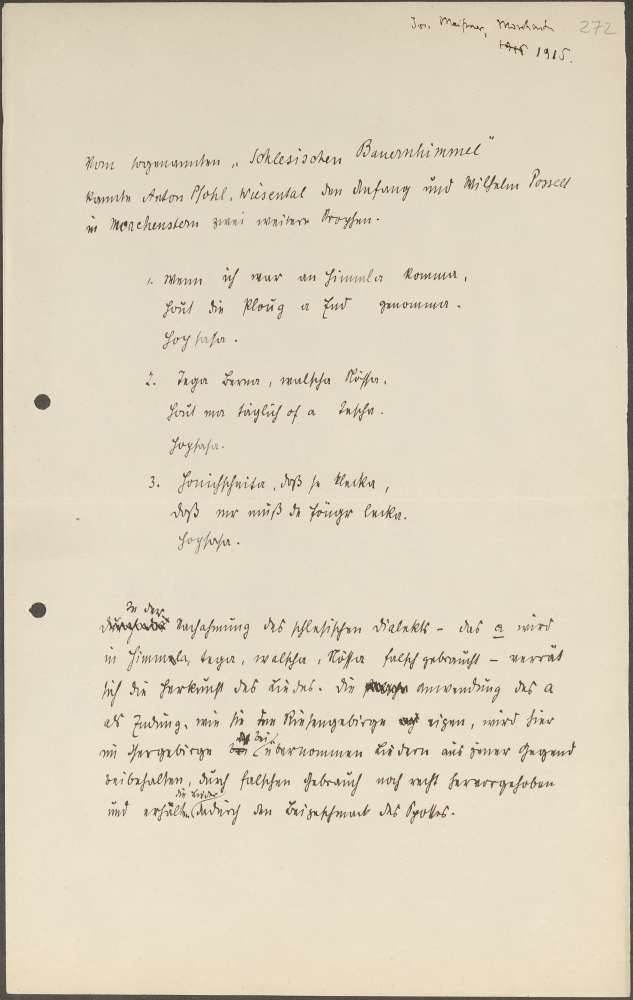 Jos. Meißner, Morchenstern 272
1915.
Vom sogenannten „Schlesischen Bauernhimmel"
kannte Anton Pfohl, Wiesental den Anfang und Wilhelm Posselt
in Morchenstern zwei weitere Strophen.
1. Wenn ich war an Himmla komma,
hout die Ploug a End genomma.
Hopsasa.
2. Tega Berna, walscha Nössa,
hout ma täglich of a Teschn.
Hopsasa.
3. Honichschnita, doß se klecka,
doß mr muß de Fönger lecka.
Hopsasa.
In der
Nachahmung des schlesischen Dialekts – das a wird
in Himmla, tega, walscha, Nössa falsch gebraucht – verrät
sich die Herkunft des Liedes. Die Anwendung des a
als Endung, wie sie dem Riesengebirge eigen, wird hier
im Isergebirge bei übernommen Liedern aus jener Gegend
beibehalten, durch falschen Gebrauch noch recht hervorgehoben
die Lieder
und erhalten dadurch den Beigeschmack des Spottes.